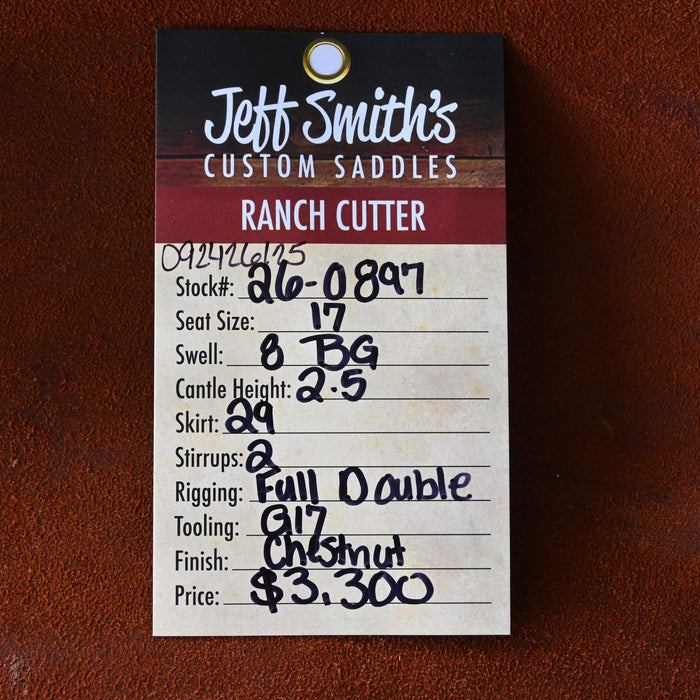 Jeff Smith's
CUSTOM SADDLES
RANCH CUTTER
092426125
Stock#: 26-0897
Seat Size: 17
Swell: 8 BG
Cantle Height: 2.5
Skirt: 29
Stirrups: 2
Rigging: Full Double
Tooling: G17
Finish: Chestnut
Price: $3,300